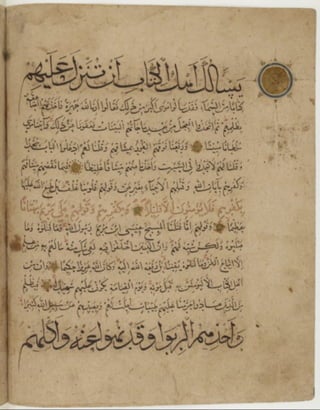 يسألك أهل الكتاب أن تنزل عليهم
كتابا من السماء فقد سألوا موسى أكبر من ذلك فقالوا أرنا الله جهرة فأخذتهم الصاعقة
بظلمهم ثم اتخذوا العجل من بعد ما جاءتهم البينات فعفونا عن ذلك وآتينا موسى
سلطانا مبينا ورفعنا فوقهم الطور بميثاقهم وقلنا لهم ادخلوا الباب سجدا
وقلنا لهم لا تعدوا في السبت وأخذنا منهم ميثاقا غليظا فبما نقضهم ميثاقهم
وكفرهم بآيات الله وقتلهم الأنبياء بغير حق وقولهم قلوبنا غلف بل طبع الله عليها
بكفرهم فلا يؤمنون إلا قليلا وبكفرهم وقولهم على مريم بهتانا
عظيما وقولهم إنا قتلنا المسيح عيسى ابن مريم رسول الله وما قتلوه وما
صلبوه ولكن شبه لهم وإن الذين اختلفوا فيه لفي شك منه ما لهم به من علم
إلا اتباع الظن وما قتلوه يقينا بل رفعه الله إليه وكان الله عزيزا حكيما وإن من
أهل الكتاب إلا ليؤمنن به قبل موته ويوم القيامة يكون عليهم شهيدا فبظلم
من الذين هادوا حرمنا عليهم طيبات أحلت لهم وبصدهم عن سبيل الله كثيرا
وأخذهم الربوا وقد نهوا عنه وأكلهم